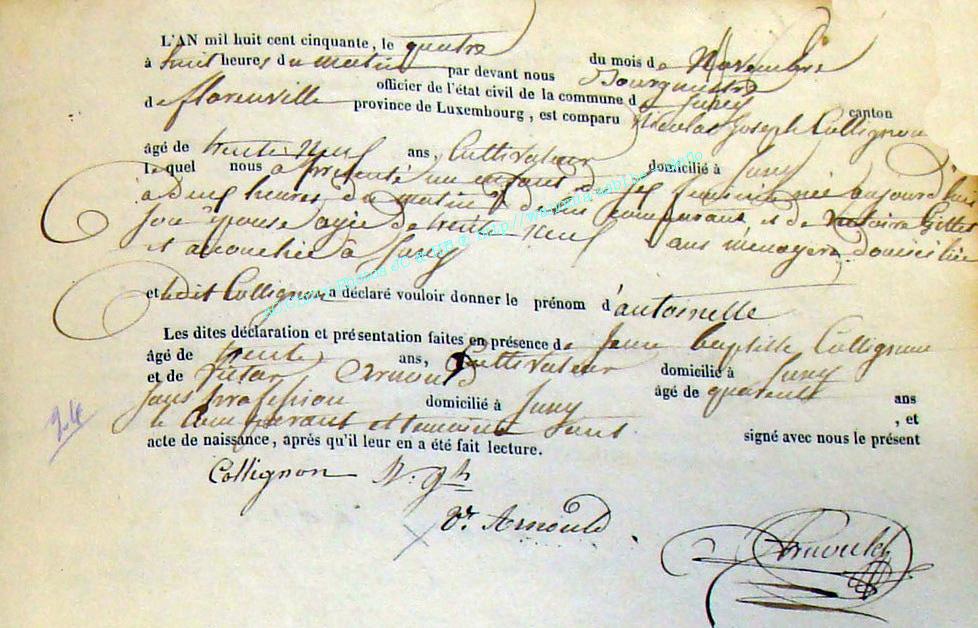 L'AN mil huit cent cinquante, le quatre du mois de Novembre
à huit heures du matin par devant nous Bourgmestre
officier de l'état civil de la commune d
de florenville province de Luxembourg, est comparu Nicolas Joseph Collignon canton
âgé de trente neuf ans, Cultivateur domicilié à
le quel nous a présenté un enfant du sex feminin née aujourd'hui
à deux heures du matin de lui comparant et de Victoire Gilles
son épouse agée de trente neuf ans ménagere domiciliée
et accouchée à
et ledit Collignon a déclaré vouloir donner le prénom d'antoinette
Les dites déclaration et présentation faites en présence de Jean baptiste Collignon
âgé de trente ans, Cultivateur domicilié à
et de Victor Arnould âgé de quarante ans
sans profession domicilié à
le Comparant et temoins sont , et signé avec nous le présent
acte de naissance, après qu'il leur en a été fait lecture.
Collignon
Vr Arnould